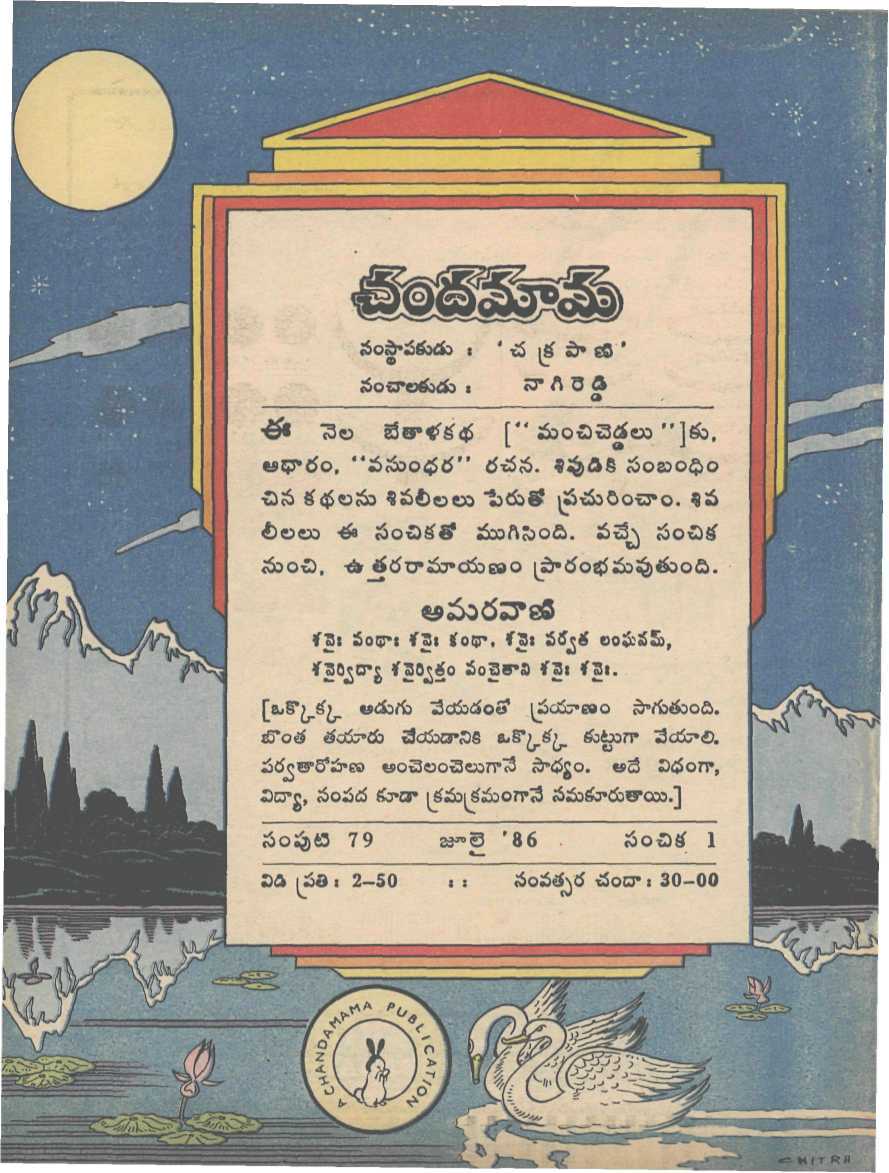 చందమామ
సంస్థాపకుడు : 'చక్రపాణి'
సంచాలకుడు : నాగిరెడ్డి
ఈ నెల బేతాళకథ ["మంచిచెడ్డలు"]కు,
ఆధారం, "వసుంధర" రచన. శివుడికి సంబంధిం
చిన కథలను శివలీలలు పేరుతో ప్రచురించాం. శివ
లీలలు ఈ సంచికతో ముగిసింది. వచ్చే సంచిక
నుంచి, ఉత్తరరామాయణం ప్రారంభమవుతుంది.
అమరవాణి
శనైః పంథాః శనైః కంథా, శనైః పర్వత లంఘనమ్,
శనైర్విద్యా శనైర్విత్తం పంచైతాని శనైః శనైః.
[ఒక్కొక్క అడుగు వేయడంతో ప్రయాణం సాగుతుంది.
బొంత తయారు చేయడానికి ఒక్కొక్క కుట్టుగా వేయాలి.
పర్వతారోహణ అంచెలంచెలుగానే సాధ్యం. అదే విధంగా,
విద్యా, సంపద కూడా క్రమక్రమంగానే సమకూరుతాయి.]
సంపుటి 79 జూలై '86 సంచిక 1
విడి ప్రతి : 2-50 : : సంవత్సర చందా : 30-00
A CHANDAMAMA PUBLICATION
CHITRA